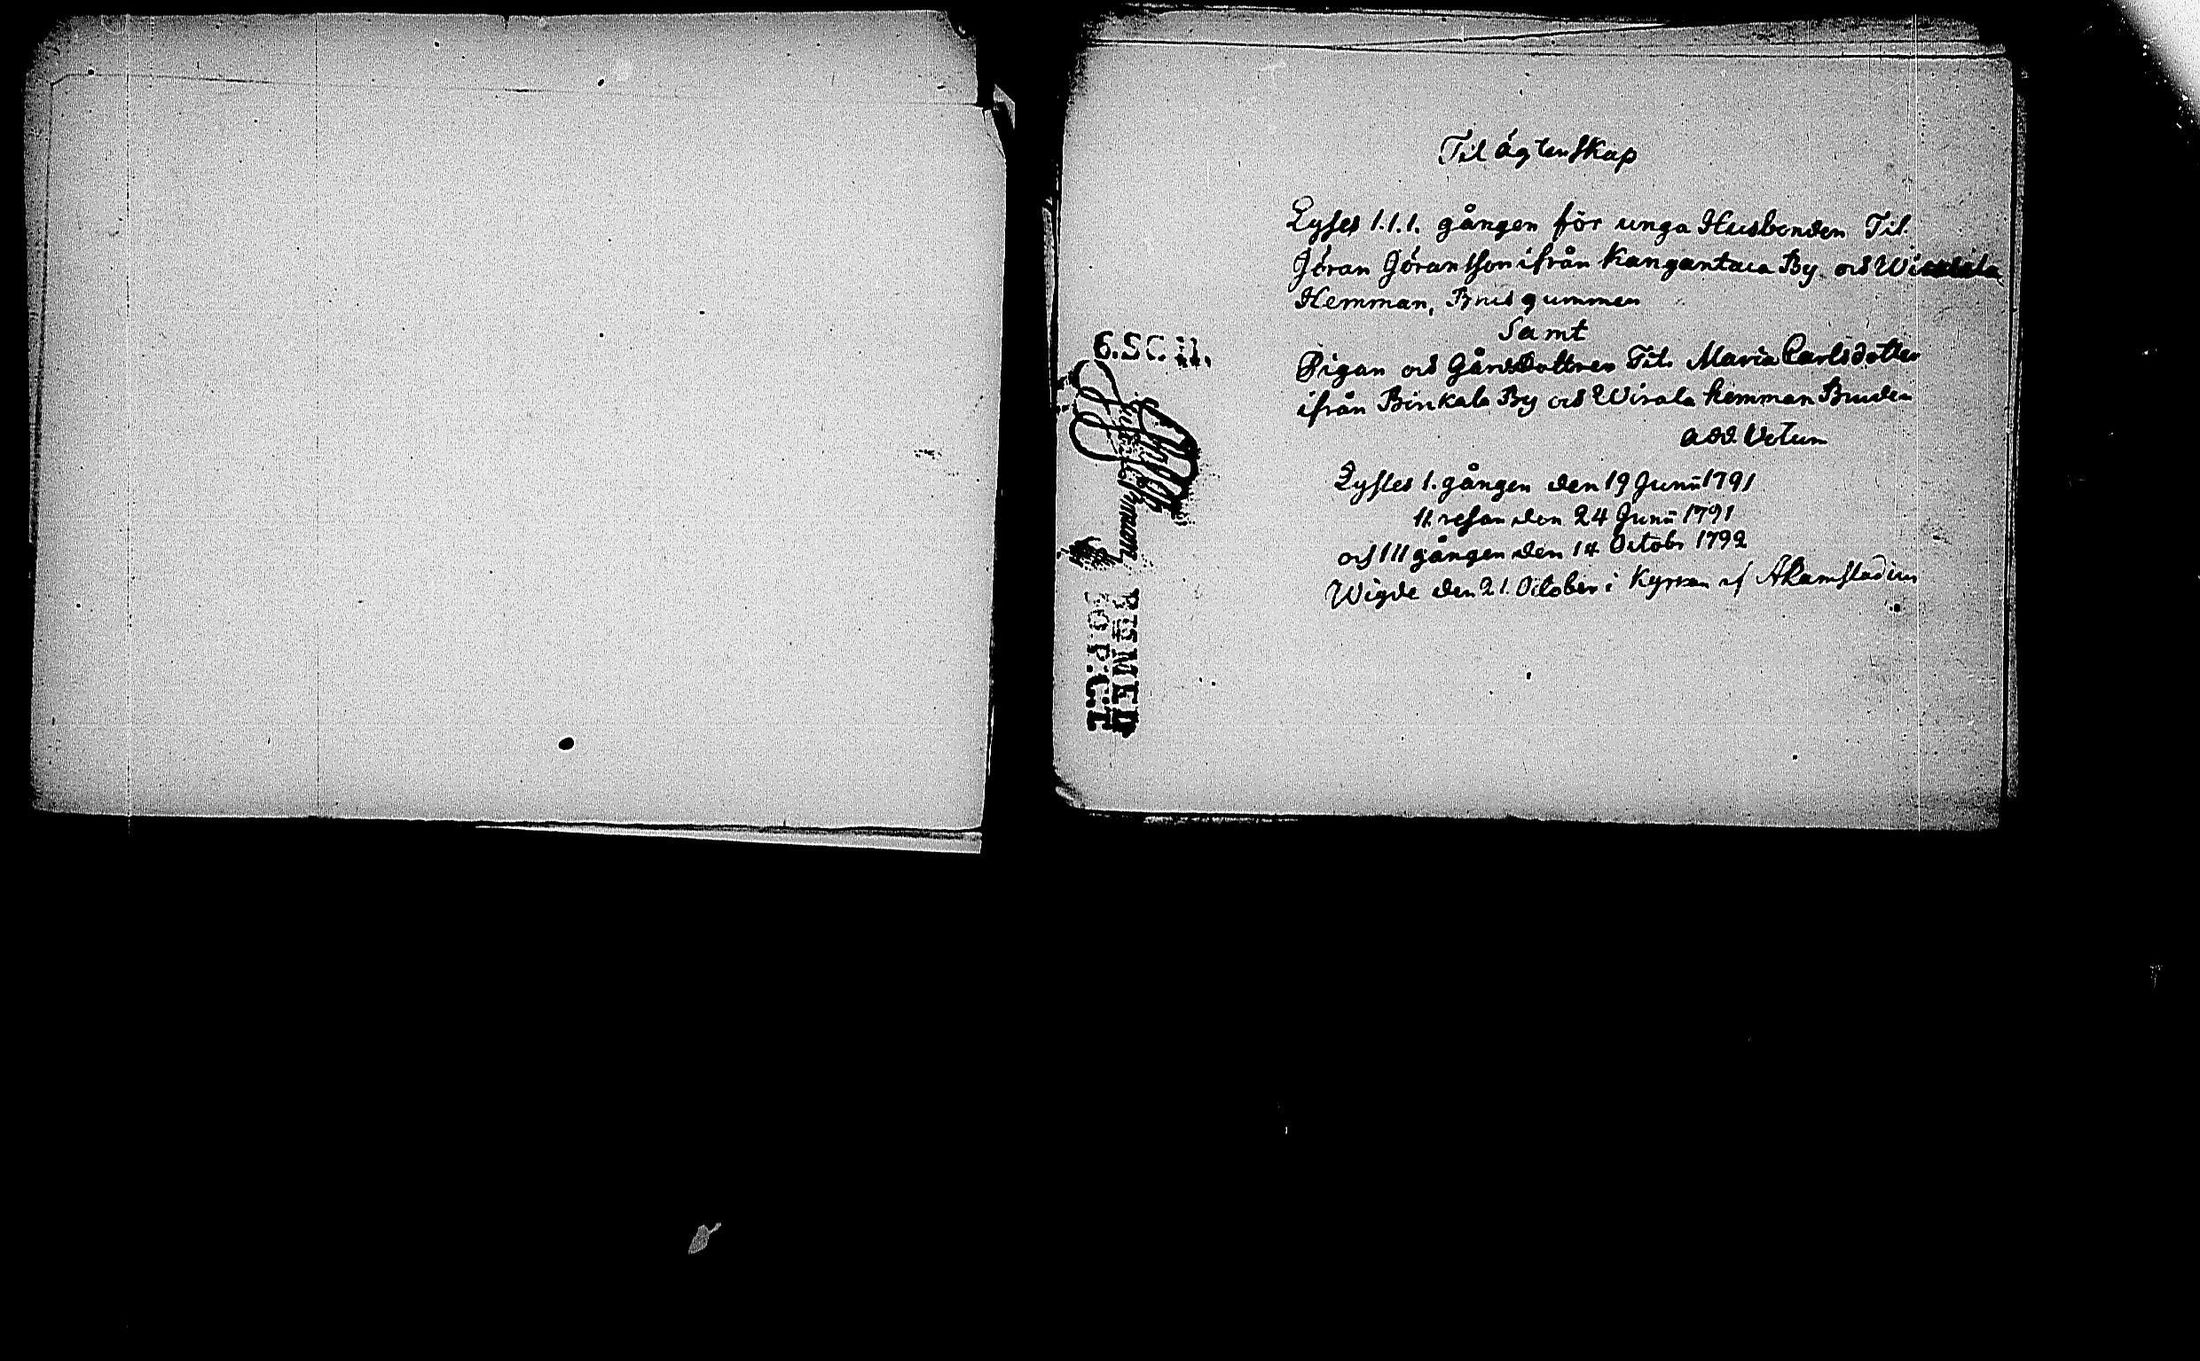 Til ägtenskap
Lyses 1.1.1. gången för unga Husbonden Tit.
Jöran Jöransson ifrån Kangantaca By. och
Hemman, Brudgummen
Samt
Pigan och Gårdsdottren Tit. Maria Carlsdotter
ifrån Binkala By och Wirala hemman Bruden
Lystes 1. gången den 19 Junii 1791
11 resan den 24 Junii 1791
och 111 gången den 14 Octobr 1792
Wigde den 21. October i Kyrkan af
6.SC.11.